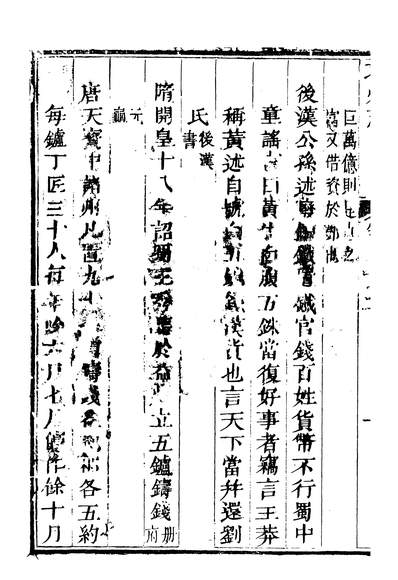 巨萬億則
富又借資於鄧也
後漢公孫述 鐵官錢百姓貨幣不行蜀中
童謠 曰黃牛白腹五銖當復好事者竊言王莽
稱黃述自號白五銖 漢貨也言天下當并還劉
氏後漢
書
隋開皇十八年詔蜀王秀 於益 立五鑪鑄錢冊府
元
龜
唐天寶中諸州凡置九十 鑄錢 各五約
每鑪丁匠三十人每年除六月七月 作餘十月